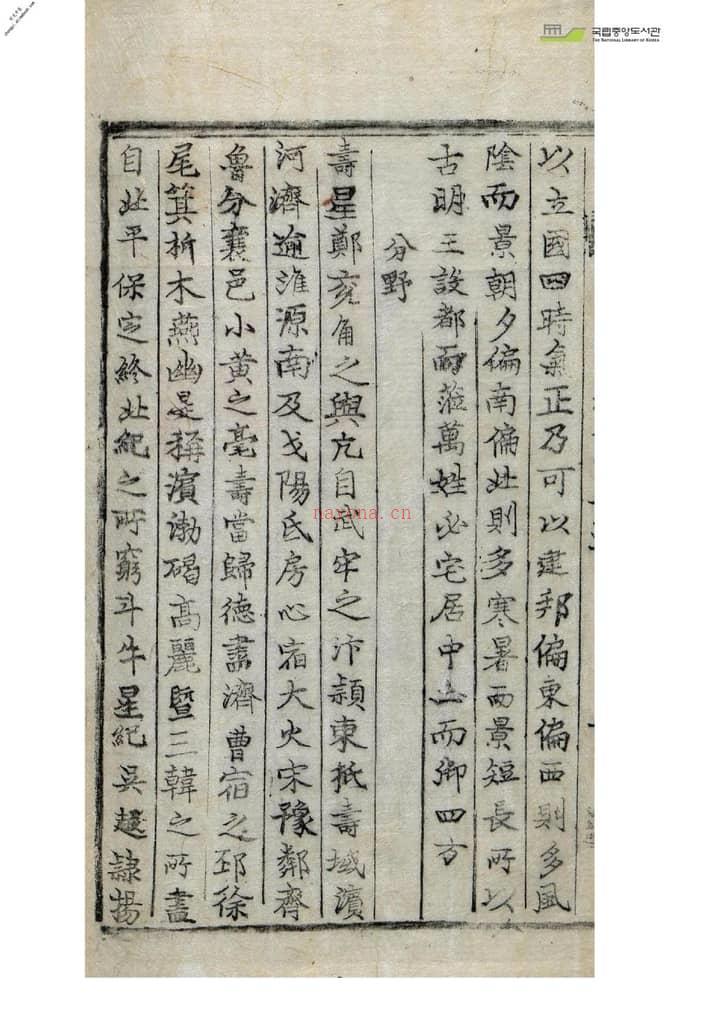 국립중앙도서관
THE NATIONAL LIBRARY OF KOREA
以立國四時氣正乃可以建邦偏東偏西則多風
陰而景朝夕偏南偏北則多寒暑而景短長所以
古明王設都而蒞萬姓必宅居中土而御四方
分野
壽星鄭兗角之與亢自武牢之汴潁東抵壽域濵
河濟逾淮源南及弋陽氐房心宿大火宋豫鄰齊
魯分襄邑小黃之亳壽當歸德盡濟曹宿之邳徐
尾箕析木燕幽是稱濵渤碣高麗曁三韓之所盡
自北平保定終北紀之所窮斗牛星紀吳越隷揚
nayona.cn